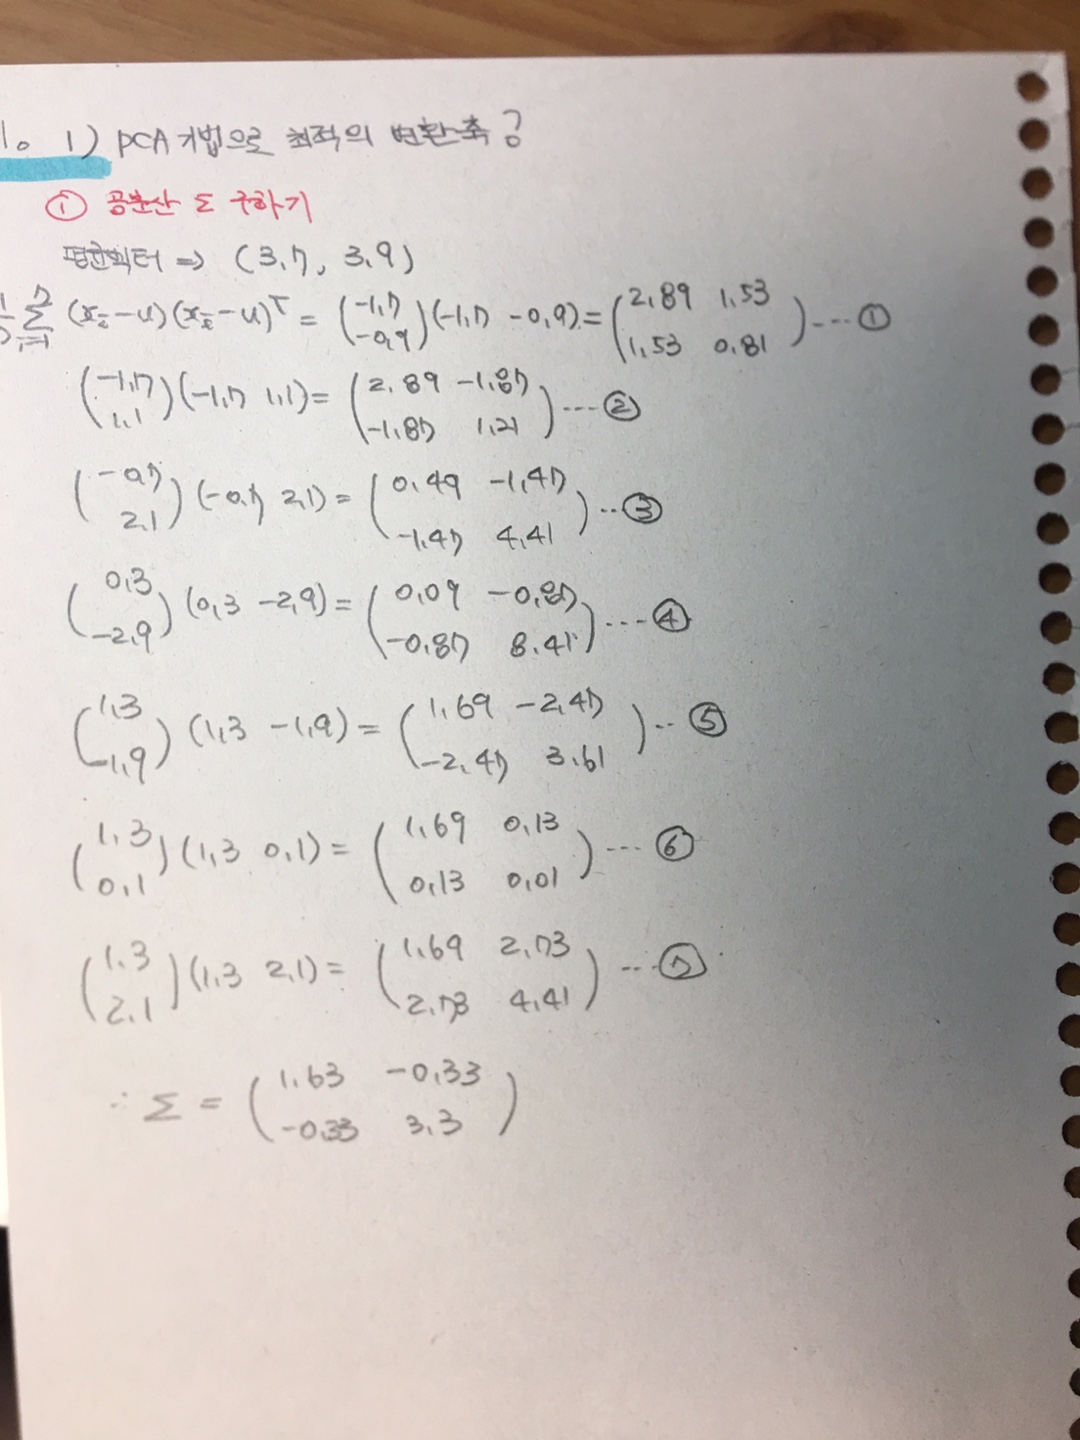 1. 1) PCA 기법으로 최적의 변환축?
① 공분산 Σ 구하기
평균벡터 => (3.7, 3.9)
Σ (xi-u)(xi-u)ᵀ = (-1.7 -0.9)(-1.7 -0.9) = (2.89 1.53 1.53 0.81) ---①
(-1.7 1.1)(-1.7 1.1) = (2.89 -1.87 -1.87 1.21) ---②
(-0.7 2.1)(-0.7 2.1) = (0.49 -1.47 -1.47 4.41) ---③
(0.3 -2.9)(0.3 -2.9) = (0.09 -0.87 -0.87 8.41) ---④
(1.3 -1.9)(1.3 -1.9) = (1.69 -2.47 -2.47 3.61) --⑤
(1.3 0.1)(1.3 0.1) = (1.69 0.13 0.13 0.01) ---⑥
(1.3 2.1)(1.3 2.1) = (1.69 2.73 2.73 4.41) ---⑦
∴ Σ = (1.63 -0.33 -0.33 3.3)